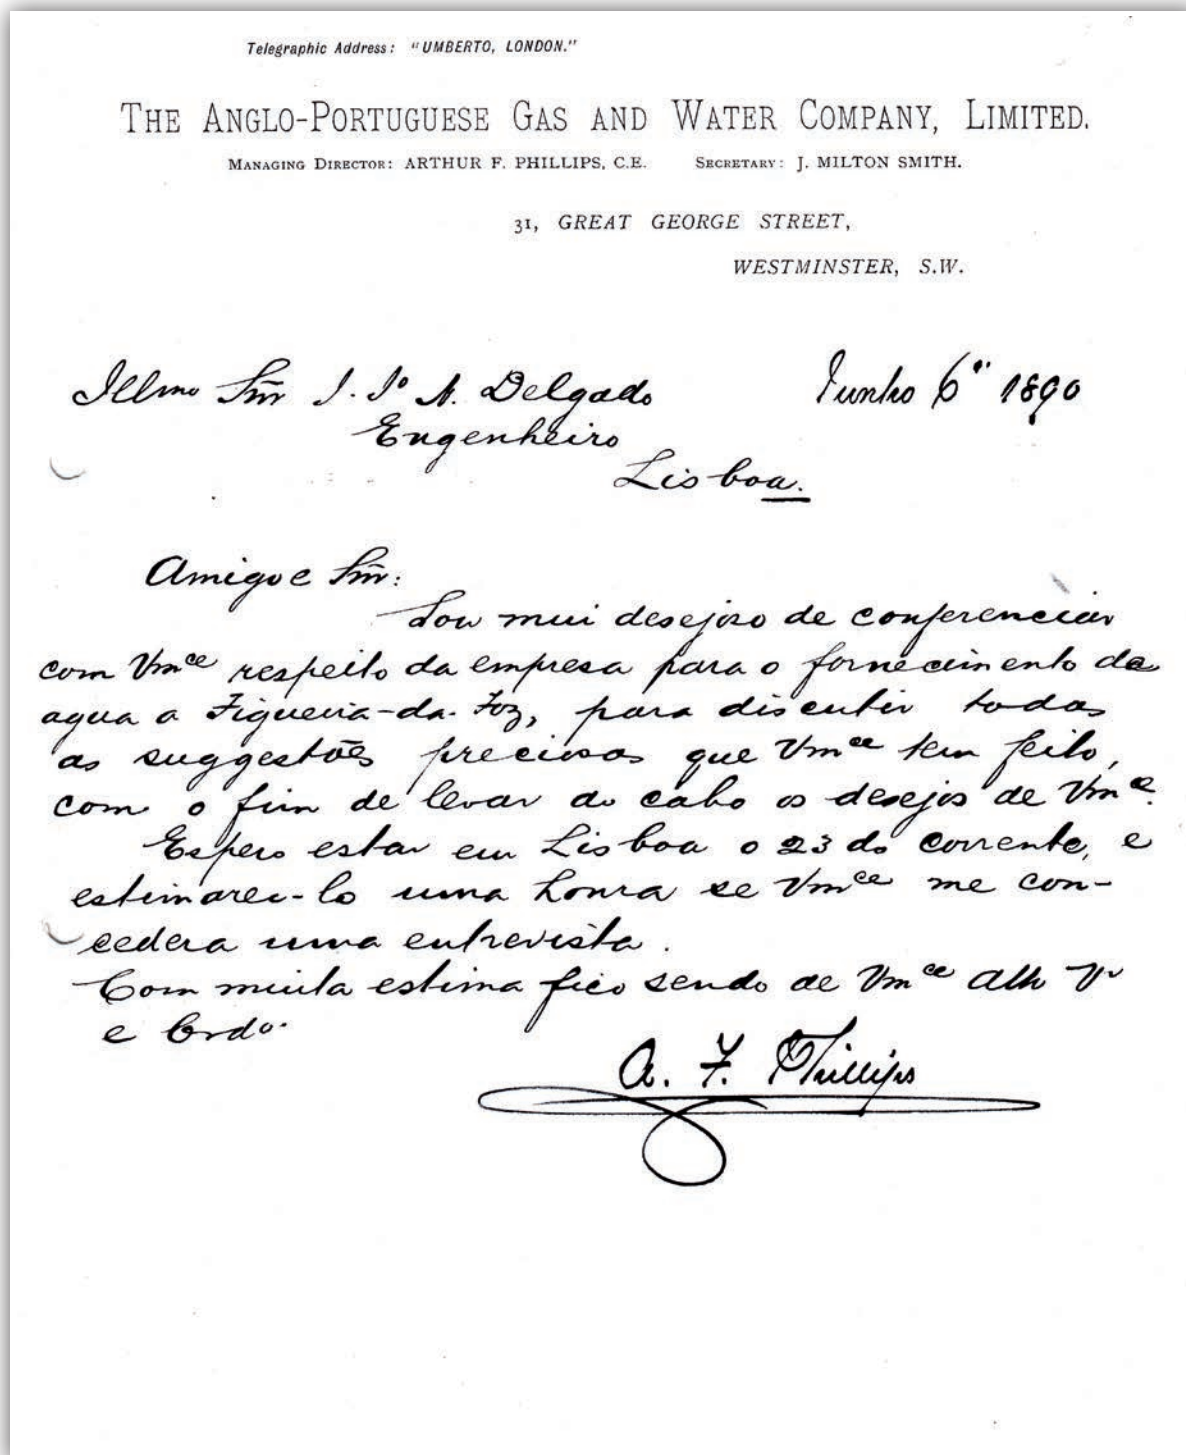 Telegraphic Address: "UMBERTO, LONDON."
THE ANGLO-PORTUGUESE GAS AND WATER COMPANY, LIMITED.
MANAGING DIRECTOR: ARTHUR F. PHILLIPS, C.E. SECRETARY: J. MILTON SMITH.
31, GREAT GEORGE STREET,
WESTMINSTER, S.W.
Illmo Snr J. Jº N. Delgado Junho 6" 1890
Engenheiro
Lisboa.
Amigo e Snr:
Sou mui desejoso de conferenciar
com Vmce respeito da empresa para o fornecimento de
agua a Figueira-da-Foz, para discutir todas
as suggestões preciosas que Vmce tem feito,
com o fim de levar do cabo os desejos de Vmce.
Espero estar em Lisboa o 23 do corrente, e
estimarei-lo uma honra se Vmce me con-
cedera uma entrevista.
Com muita estima fico sendo de Vmce Atto Vr
e Crdo.
A. F. Phillips